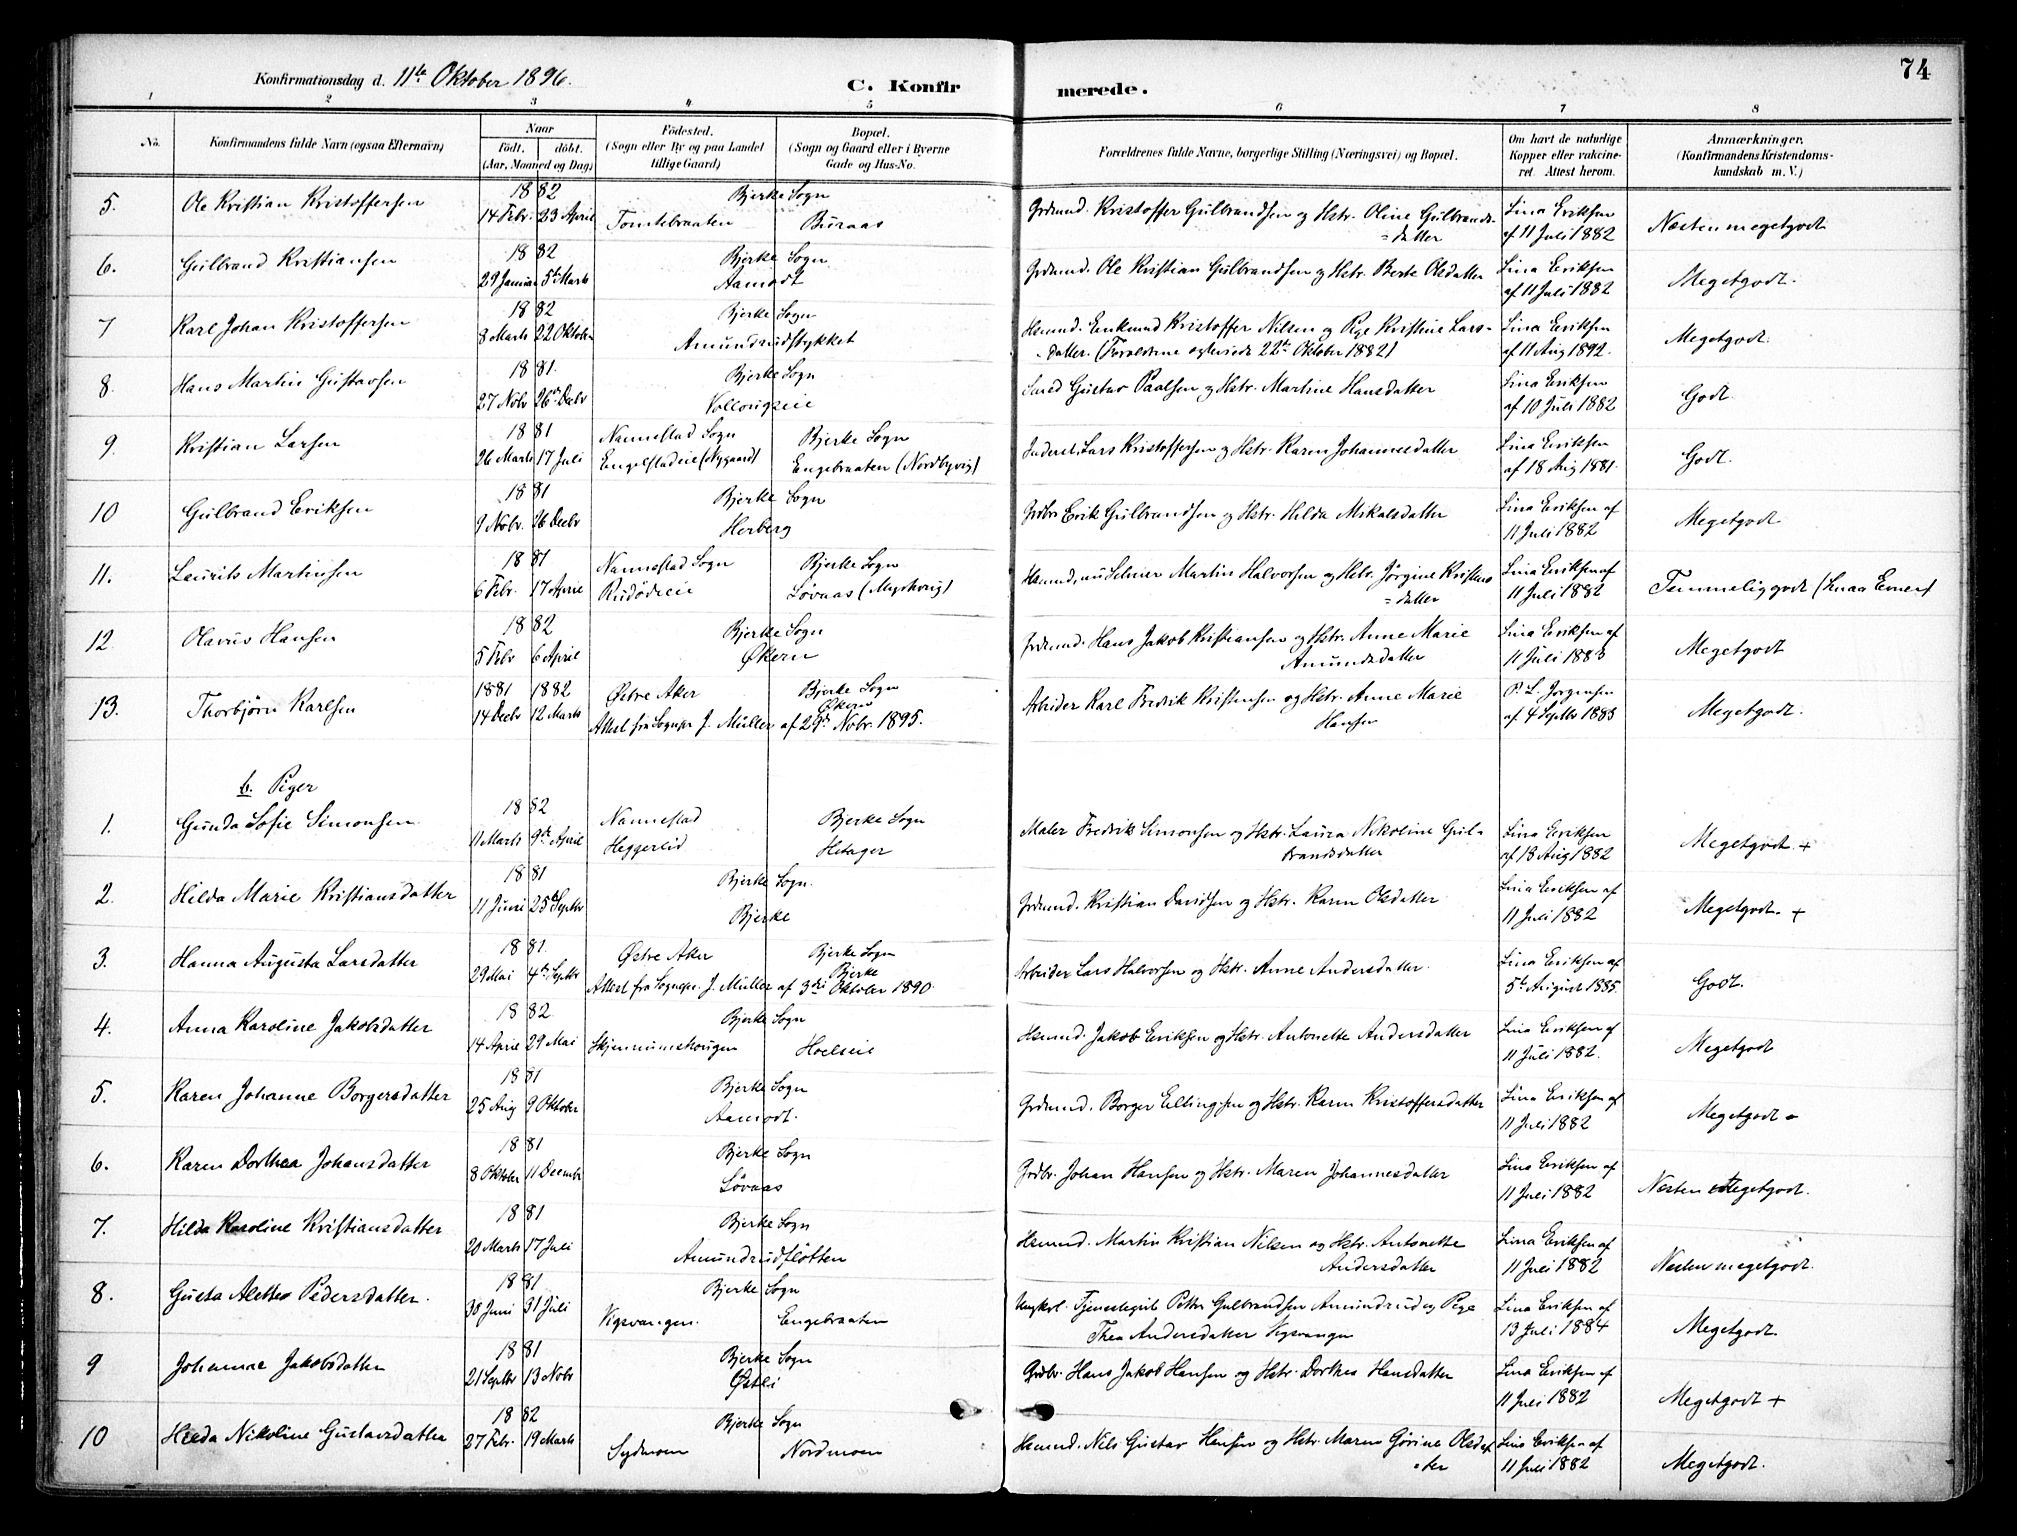 74
Konfirmationsdag d. 11te Oktober 1896.
C. Konfirmerede.
1 2 3 4 5 6 7 8
No. Konfirmandens fulde Navn (ogsaa Efternavn) Naar Födt. döbt. (Aar, Maaned og Dag) Födested. (Sogn eller By og paa Landet tillige Gaard) Bopæl. (Sogn og Gaard eller i Byerne Gade og Hus-No. Forældrenes fulde Navne, borgerlige Stilling (Næringsvei) og Bopæl. Om havt de naturlige Kopper eller vakcineret. Attest herom. Anmærkninger. (Konfirmandens Kristendomskundskab m. V.)
5. Ole Kristian Kristoffersen 1882 14 Febr. 23 April Bjerke Sogn Tomtebraaten Buraas Grdmd. Kristoffer Gulbrandsen og Hstr. Oline Gulbrands=datter Lina Eriksen af 11 Juli 1882 Næsten megetgodt
6. Gulbrand Kristiansen 1882 29 Januar 5te Marts Bjerke Sogn Aamodt Grdmd. Ole Kristian Gulbrandsen og Hstr. Berte Olsdatter Lina Eriksen af 11 Juli 1882 Megetgodt.
7 Karl Johan Kristoffersen 1882 8 Marts 22 Oktober Bjerke Sogn Amundrudstykket Hsmd. Enkemand Kristoffer Nilsen og Pige Kristine Lars-datter. (Forældrene egteviede 22de Oktober 1882) Lina Eriksen af 11 Aug 1892. Megetgodt.
8. Hans Martin Gustavsen 1881. 27 Nobr 26de Decbr Bjerke Sogn Vollaugseie Smed Gustav Paalsen og Hstr. Martine Hansdatter Lina Eriksen af 10 Juli 1882 Godt.
9. Kristian Larsen 1881 26 Marts 17 Juli Nannestad Sogn Engelstadeie (Nygaard) Bjerke Sogn Engebraaten (Nordbyvig) Inderst. Lars Kristoffersen og Hstr. Karen Johannesdatter Lina Eriksen af 18 Aug 1881. Godt.
10 Gulbrand Eriksen 1881 9 Nobr. 26 Decbr Bjerke Sogn Herberg Grdbr. Erik Gulbrandsen og Hstr. Hilda Mikalsdatter Lina Eriksen af 11 Juli 1882 Megetgodt
11. Laurits Martinsen 1881 6 Febr. 17 April Nannestad Sogn Rudödeie Bjerke Sogn Løvaas (Myrhvig) Hsmd, nu Selveier Martin Halvorsen og Hstr. Jörgine Kristens=datter Lina Eriksen af 11 Juli 1882 Temmeliggodt (Smaa Evner)
12. Olavus Hansen 1882 5 Febr 6 April Bjerke Sogn Økern Grdmd. Hans Jakob Kristiansen og Hstr. Anne Marie Amundsdatter Lina Eriksen af 11 Juli 1883 Megetgodt
13. Thorbjörn Karlsen 1881 1882 14 Decbr 12 Marts Østre Aker Bjerke Sogn Økern Attest fra Sognepr. J. Müller af 29de Nobr. 1895. Arbeider Karl Fredrik Kristensen og Hstr. Anne Marie Hansen P. L. Jorgensen af 4 Septbr 1883 Megetgodt.
b. Piger
1. Gunda Sofie Simonsen. 1882 11 Marts 9de April Nannestad Heggerlid Bjerke Sogn Hetager Maler Fredrik Simonsen og Hstr. Laura Nikoline Gul=brandsdatter Lina Eriksen af 18 Aug 1882 Megetgodt. +
2. Hilda Marie Kristiansdatter 1881 11 Juni 25de Septbr Bjerke Sogn. Bjerke Grdmd. Kristian Davidsen og Hstr. Karen Olsdatter Lina Eriksen af 11 Juli 1882 Megetgodt. +
3. Hanna Augusta Larsdatter 1881. 29 Mai 4de Septbr Østre Aker Bjerke Sogn Bjerke Attest fra Sognepr. J. Müller af 3die Oktober 1890. Arbeider Lars Halvorsen og Hstr. Anne Andersdatter. Lina Eriksen af 5te August 1885. Godt.
4. Anna Karoline Jakobsdatter 1882 14 April 29 Mai Bjerke Sogn Skjennumshaugen Hoelseie Hsmd. Jakob Eriksen og Hstr. Antonette Andersdatter Lina Eriksen af 11 Juli 1882. Megetgodt
5. Karen Johanne Borgersdatter 1881 25 Aug 9 Oktober Bjerke Sogn Aamodt. Grdmd. Borger Ellingsen og Hstr. Karen Kristoffersdatter Lina Eriksen af 11 Juli 1882 Megetgodt
6. Karen Dorthea Johansdatter 1881 8 Oktober 11 Decembr Bjerke Sogn Løvaas Grdbr. Johan Hansen og Hstr. Maren Johannesdatter Lina Eriksen af 11 Juli 1882 Næsten Megetgodt.
7. Hilda Karoline Kristiansdatter 1881 20 Marts 17 Juli Bjerke Sogn Amundrudfløtten Hsmd. Martin Kristian Nilsen og Hstr. Antonette Andersdatter Lina Eriksen af 11 Juli 1882 Næsten megetgodt.
8. Gusta Alettea Pedersdatter. 1881. 30 Juni 31 Juli Bjerke Sogn Vigsvangen. Engebraaten Ungkrl. Tjenestegut Petter Gulbrandsen Amundrud og Pige Thea Andersdatter Vigsvangen Lina Eriksen af 13 Juli 1884 Megetgodt.
9 Johanne Jakobsdatter 1881 21 Septbr 13 Nobr Bjerke Sogn Østli Grdbr. Hans Jakob Hansen og Hstr. Dorthea Hansdatter Lina Eriksen af 11 Juli 1882 Megetgodt +
10 Hilda Nikoline Gustavsdatter 1882 27 Febr. 19 Marts Bjerke Sogn Sydmoen Nordmoen Hsmd. Nils Gustav Hansen og Hstr. Maren Görine Olsdat=ter Lina Eriksen af 11 Juli 1882 Megetgodt.